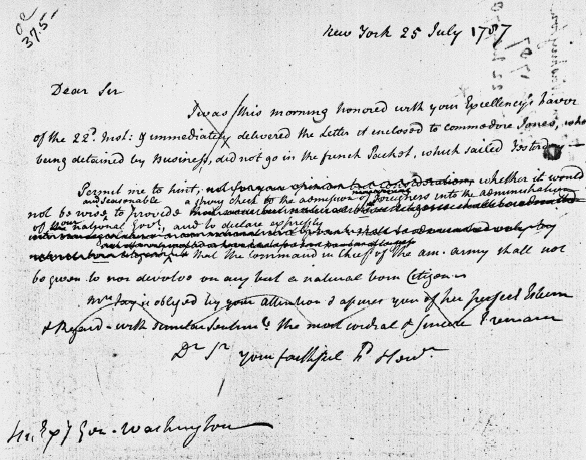 New York 25 July 1787
Dear Sir
I was this morning honored with your Excellency's favor
of the 22d. Inst: & immediately delivered the Letter it enclosed to commodore Jones, who
being detained by Business, did not go in the french Packet, which sailed Yesterday.
Permit me to hint, whether it would
and seasonable a strong check to the admission of Foreigners into the administration
not be wise to provide
of our national Govt., and to declare expressly
that the Command in chief of the am. army shall not
be given to nor devolve on any but a natural born Citizen
Mrs Jay is obliged by your attention & assures you of her perfect Esteem
& Regard - with similar Sentimts the most cordial & sincere I remain
Dr Sr your faithful Fd & Servt
His Exy Gen. Washington